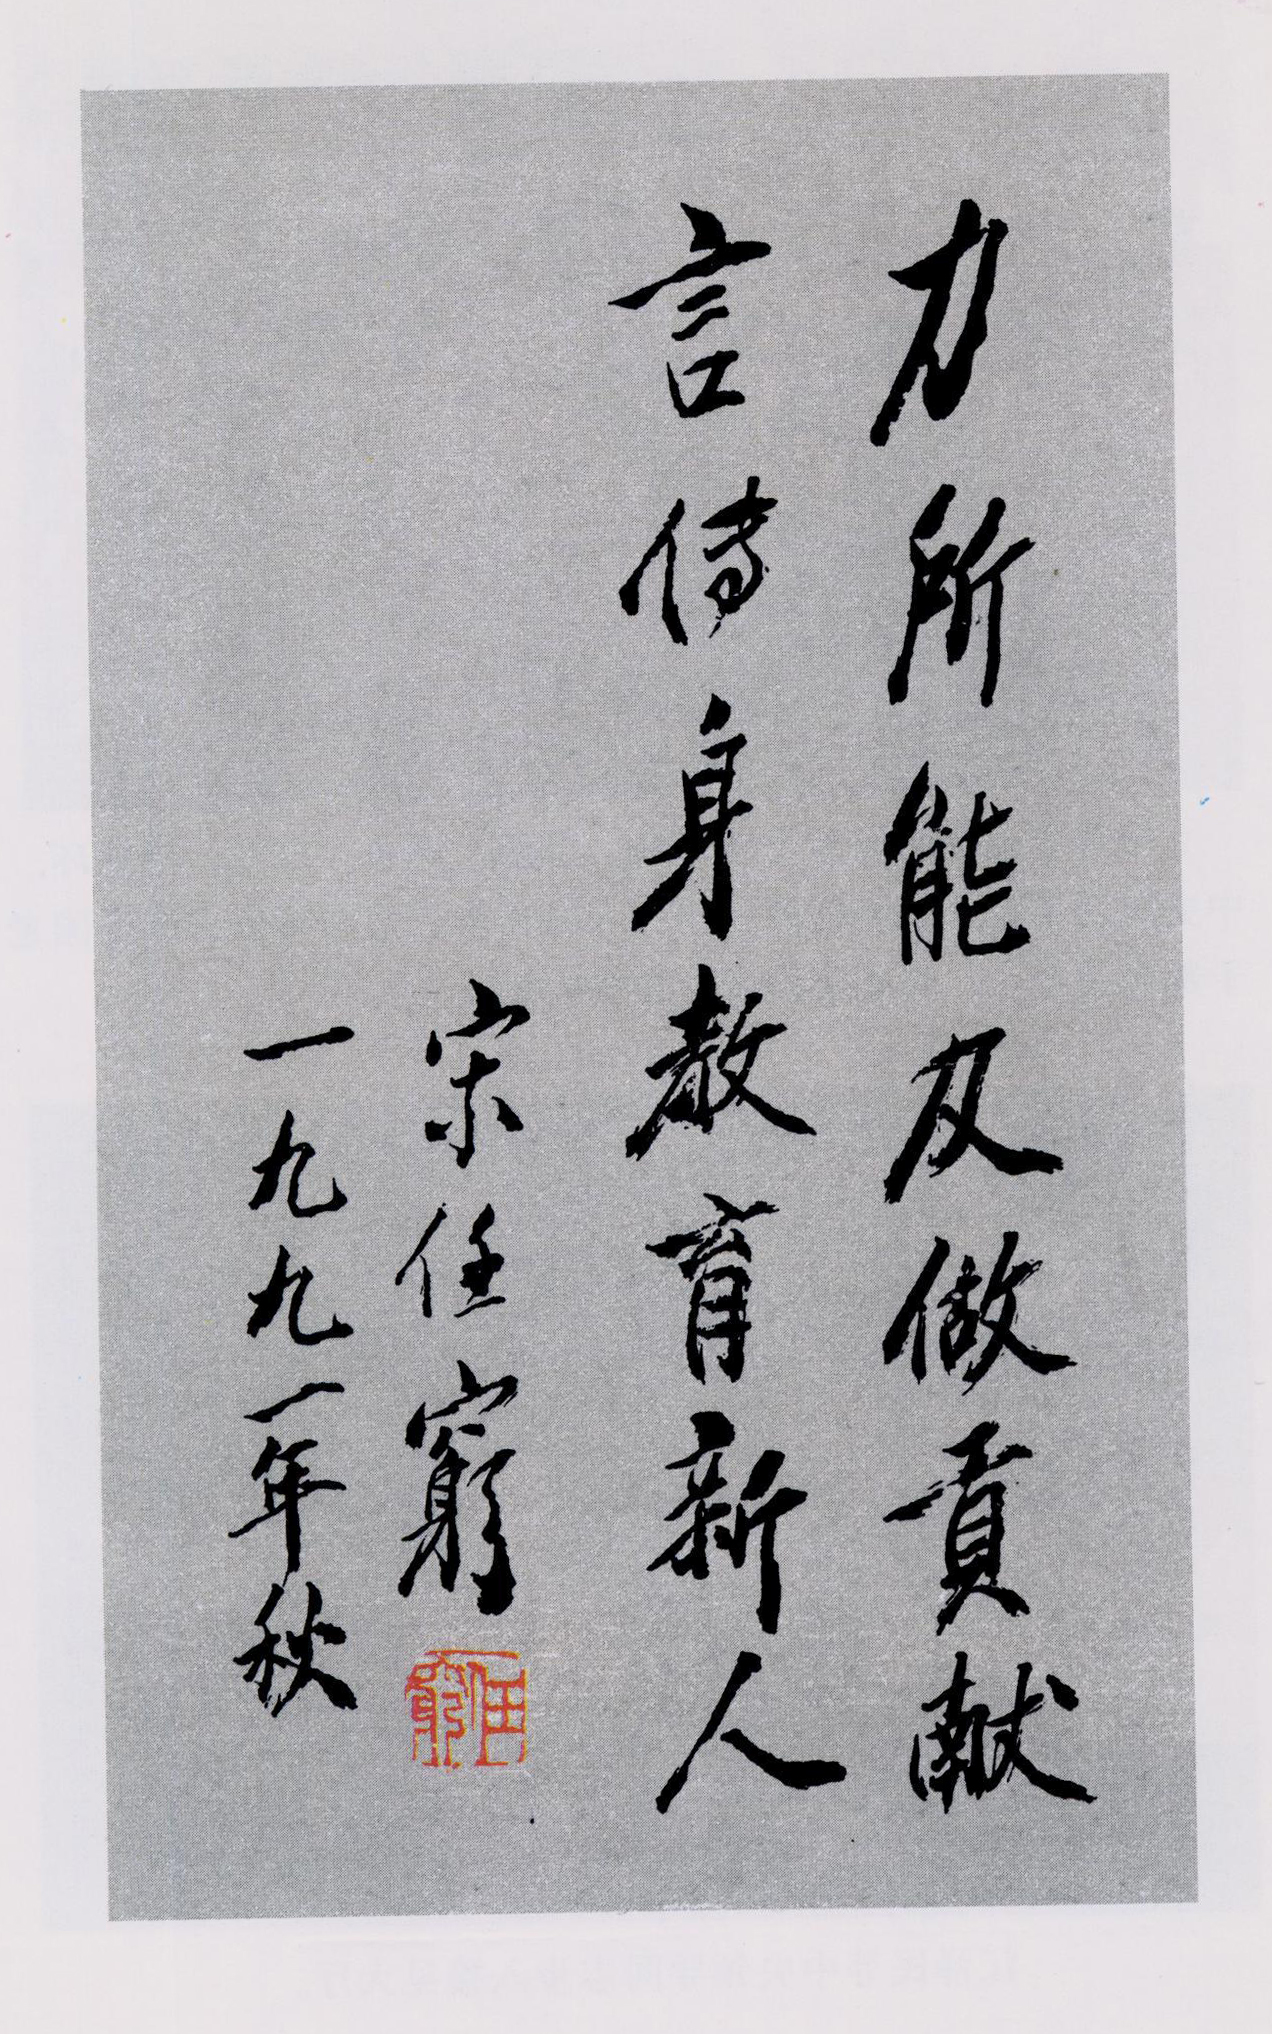 力所能及做貢献
言传身教育新人
宋任窮
一九九一年秋
任窮